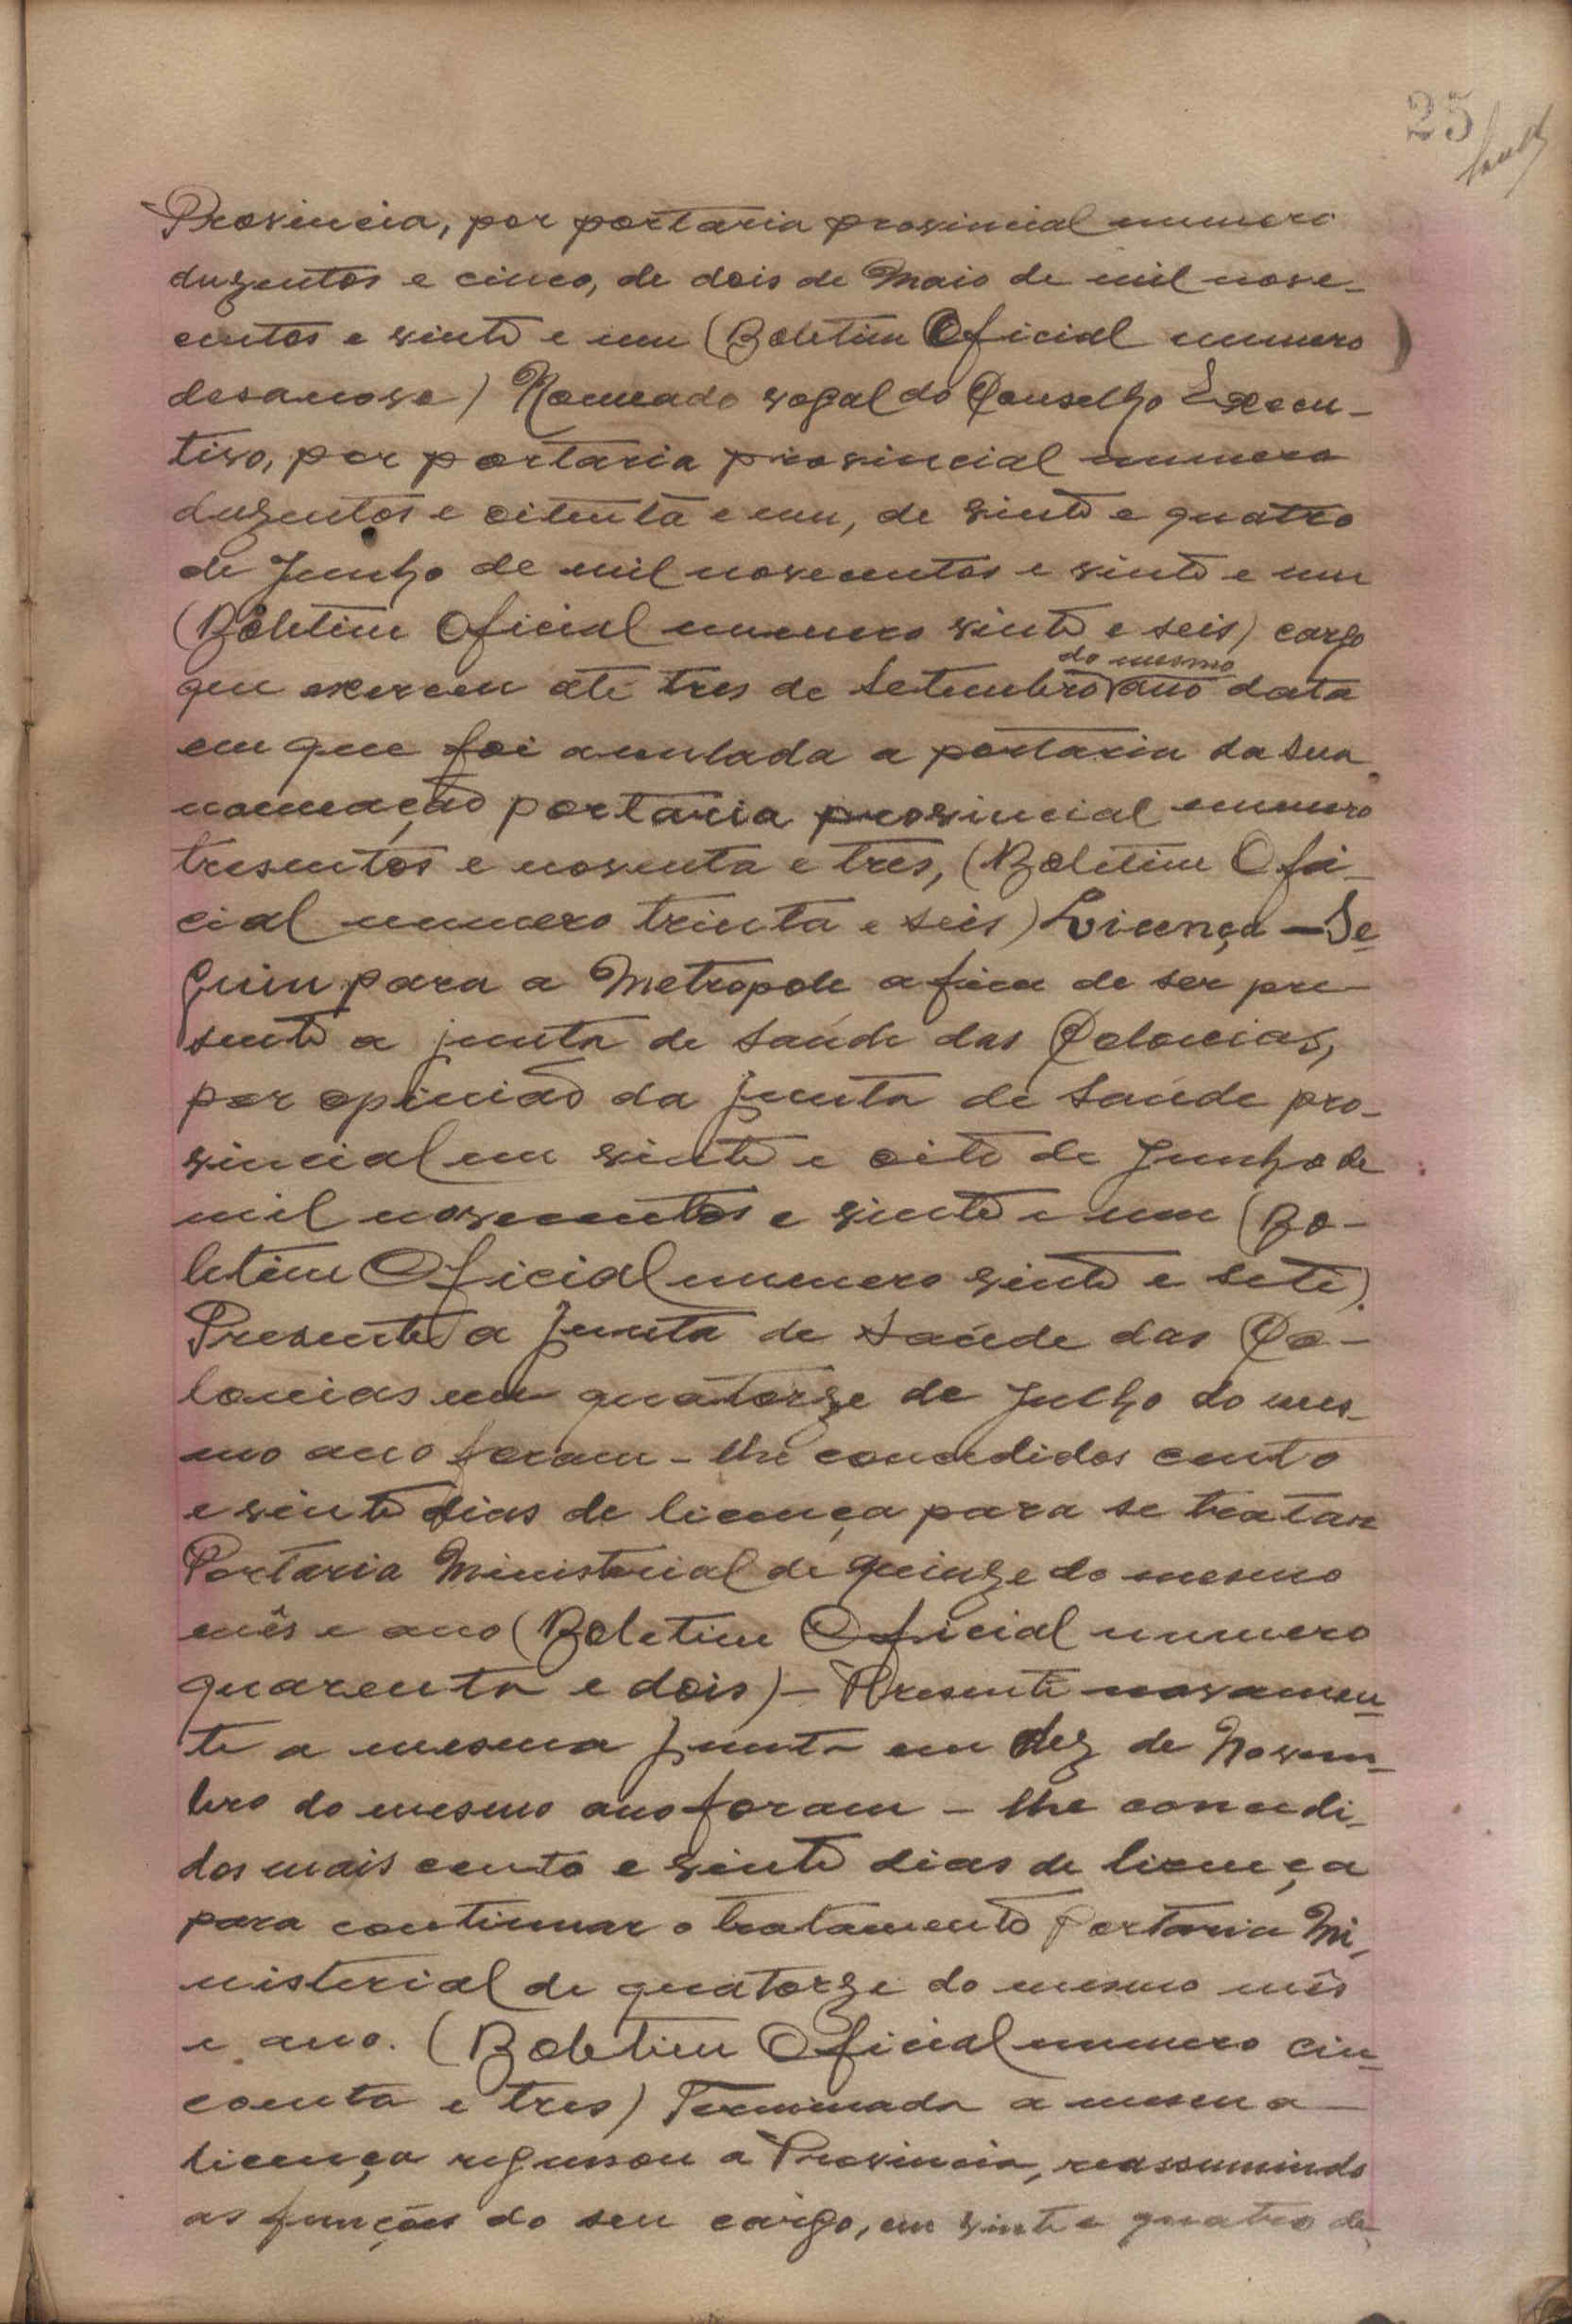 25
Provincia, por portaria provincial numero
duzentos e cinco, de dois de Maio de mil nove-
centos e vinte e um (Boletim Oficial numero
desanove) Nomeado vogal do Conselho Execu-
tivo, por portaria provincial numero
duzentos e oitenta e um, de vinte e quatro
de Junho de mil novecentos e vinte e um
(Boletim Oficial numero vinte e seis) cargo
do mesmo
que exerceu até tres de Setembro ano data
em que foi anulada a portaria da sua
nomeação portaria provincial numero
tresentos e noventa e tres, (Boletim Ofi-
cial numero trinta e seis) Licença - Se-
guiu para a Metropole a fim de ser pre-
sente a junta de Saúde das Colonias,
por opinião da junta de Saúde pro-
vincial em vinte e oito de Junho de
mil novecentos e vinte e um (Bo-
letim Oficial numero vinte e sete).
Presente a Junta de Saúde das Co-
lonias em quatorze de Julho do mes-
mo ano foram-lhe concedidos cento
e vinte dias de licença para se tratar
Portaria Ministerial de quinze do mesmo
mês e ano (Boletim Oficial numero
quarenta e dois) - Presente novamen-
te a mesma Junta em dez de Novem-
bro do mesmo ano foram-lhe concedi-
dos mais cento e vinte dias de licença
para continuar o tratamento Portaria Mi-
nisterial de quatorze do mesmo mês
e ano. (Boletim Oficial numero cin-
coenta e tres) Terminada a mesma
licença regressou a Provincia, reassumindo
as funções do seu cargo, em vinte e quatro de